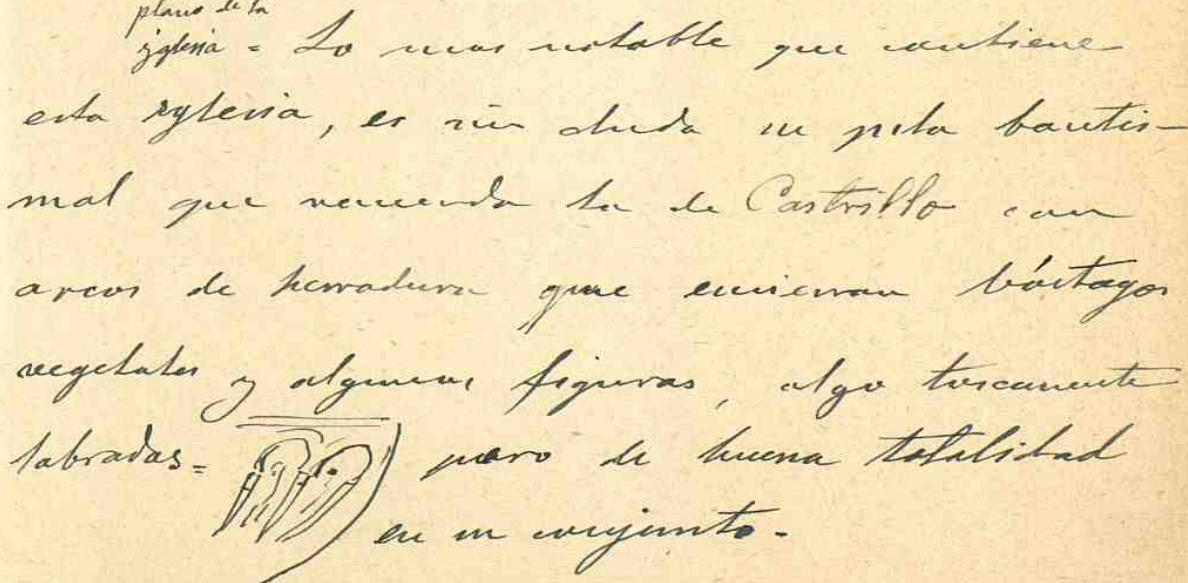 plano de la
yglesia = Lo mas notable que contiene
esta yglesia, es sin duda su pila bautis-
mal que recuerda la de Castrillo con
arcos de herradura que encierran bástagos
vegetales y algunas figuras, algo toscamente
labradas = pero de buena totalidad
en su conjunto.